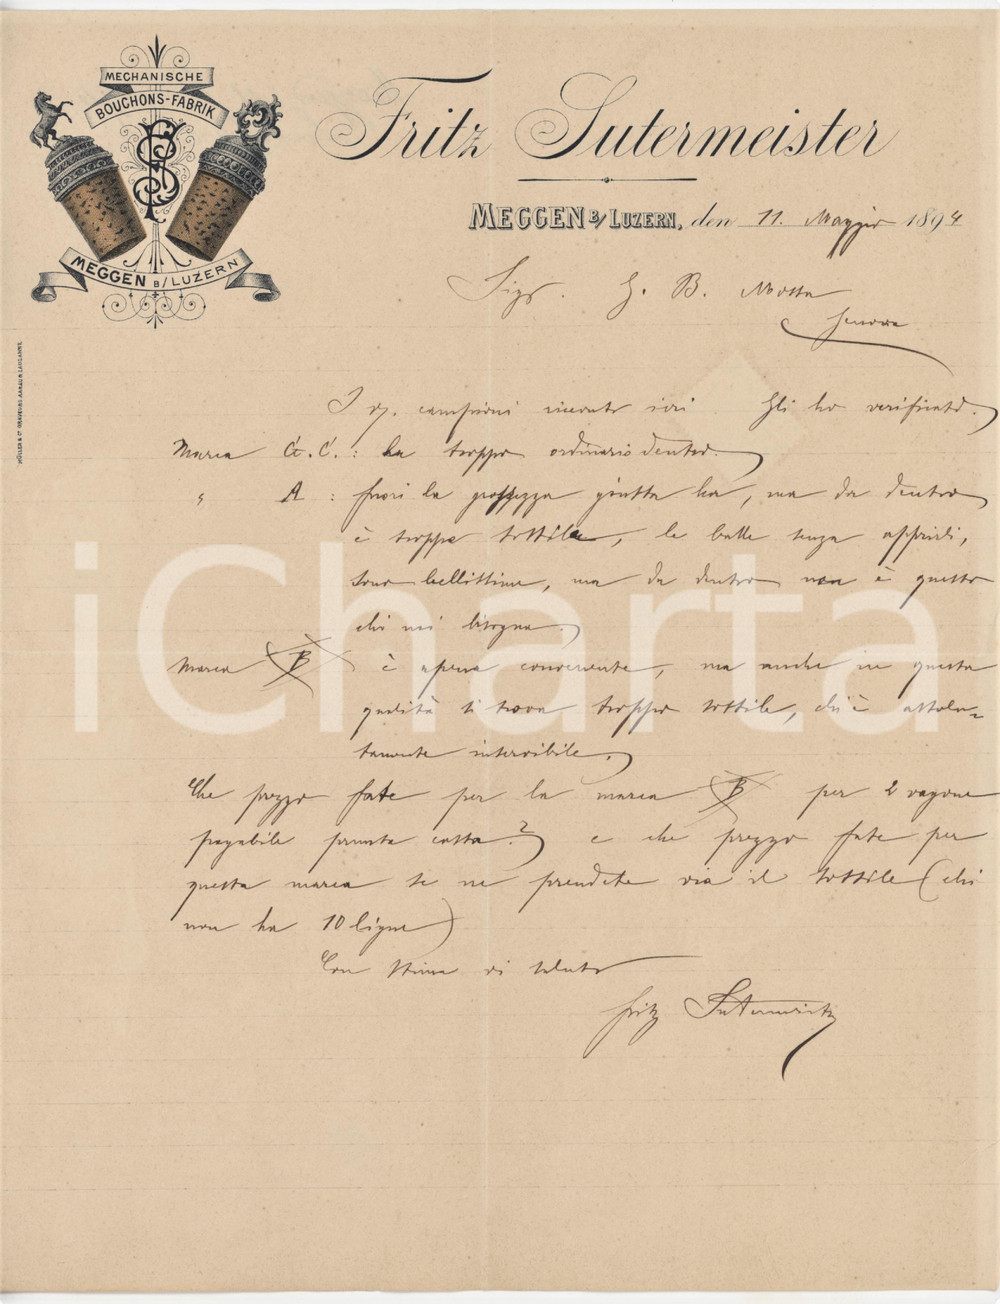 MECHANISCHE
BOUCHONS-FABRIK
FS
MEGGEN B/LUZERN
Fritz Sutermeister
MEGGEN B/LUZERN, den 11. Maggio 1894
Sigr. G. B. Mossa
Genova
I campioni ricevuto ieri Gli ho verificato.
Marca C.C.: ha troppo ordinario dentro.
" A : fuori la grossezza giusta ha, ma da dentro
è troppo sottile, le balle senza aprirli,
sono bellissime, ma da dentro non è questo
chi mi bisogna.
Marca B è apena conveniente, ma anche in questa
qualità si trova troppo sottile, chi è assolu=
tamente inservibile.
Che prezzo fate per la marca B per 2 vagone
pagabile pronta cassa? e che prezzo fate per
questa marca se ne prendete via il sottile (chi
non ha 10 ligne)
Con stima vi saluto
Fritz Sutermeister
MÜLLER & CIE GRAVEURS AARAU & LAUSANNE
iCharta